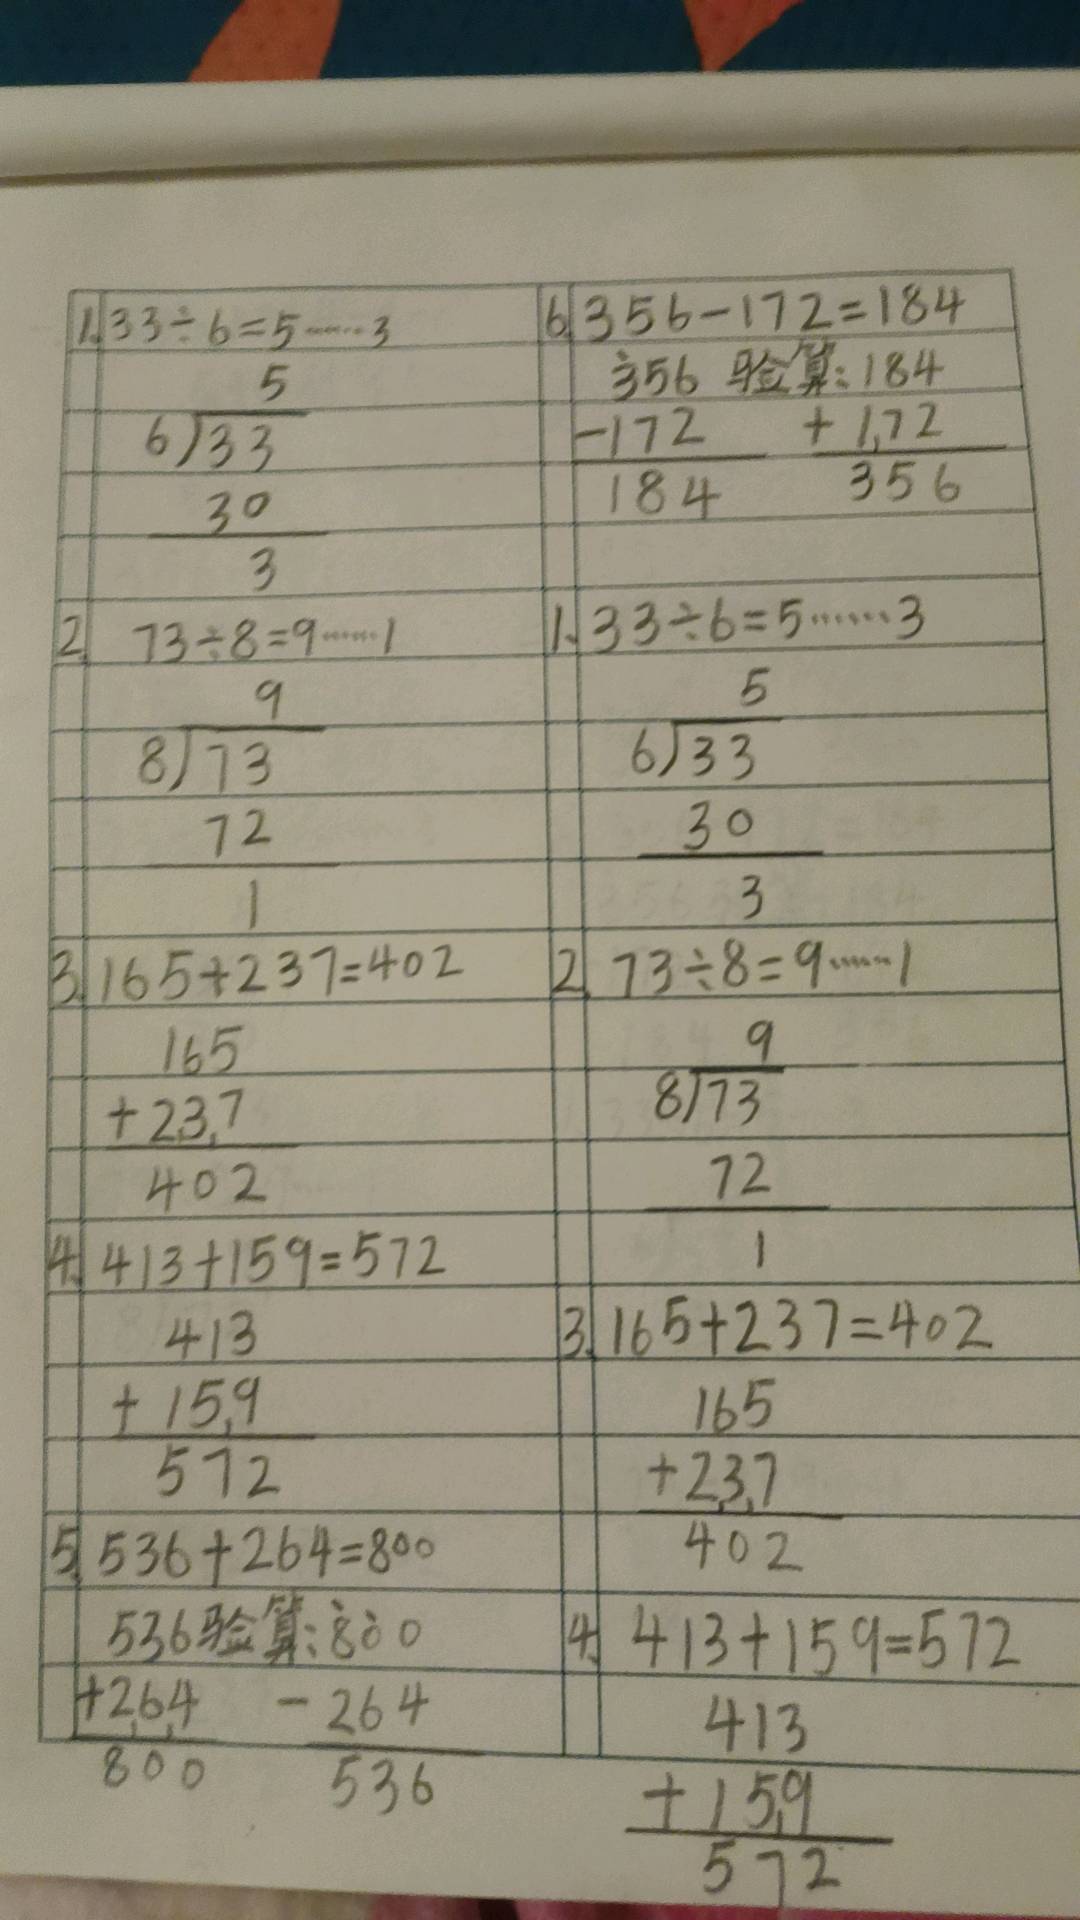 1. 33÷6=5……3
5
6)33
30
3
2. 73÷8=9……1
9
8)73
72
1
3. 165+237=402
165
+237
402
4. 413+159=572
413
+159
572
5. 536+264=800
536 验算:800
+264 -264
800 536
6. 356-172=184
356 验算:184
-172 +172
184 356
1. 33÷6=5……3
5
6)33
30
3
2. 73÷8=9……1
9
8)73
72
1
3. 165+237=402
165
+237
402
4. 413+159=572
413
+159
572